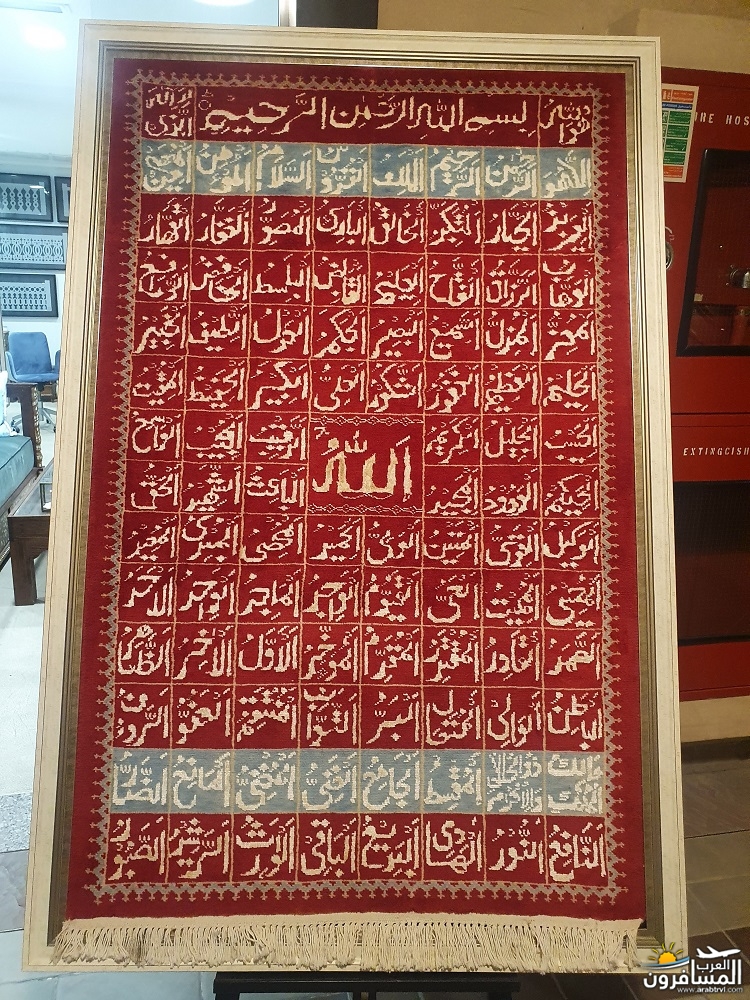 بسم الله الرحمن الرحيم
هو الله الذي
الرحمن الرحيم الملك القدوس السلام المؤمن المهيمن
العزيز الجبار المتكبر الخالق البارئ المصور الغفار القهار
الوهاب الرزاق الفتاح العليم القابض الباسط الخافض الرافع
المعز المذل السميع البصير الحكم العدل اللطيف الخبير
الحليم العظيم الغفور الشكور العلي الكبير الحفيظ المقيت
الحسيب الجليل الكريم الرقيب المجيب الواسع
الله
الحكيم الودود المجيد الباعث الشهيد الحق
الوكيل القوي المتين الولي الحميد المحصي المبدئ المعيد
المحيي المميت الحي القيوم الواجد الماجد الواحد الاحد
الصمد القادر المقتدر المقدم المؤخر الاول الاخر الظاهر
الباطن الوالي المتعالي البر التواب المنتقم العفو الرؤف
مالك الملك ذو الجلال والاكرام المقسط الجامع الغني المغني المانع الضار
النافع النور الهادي البديع الباقي الوارث الرشيد الصبور
FIRE HOS
EXTINGUISH
العرب المسافرون
www.arabtrvl.com